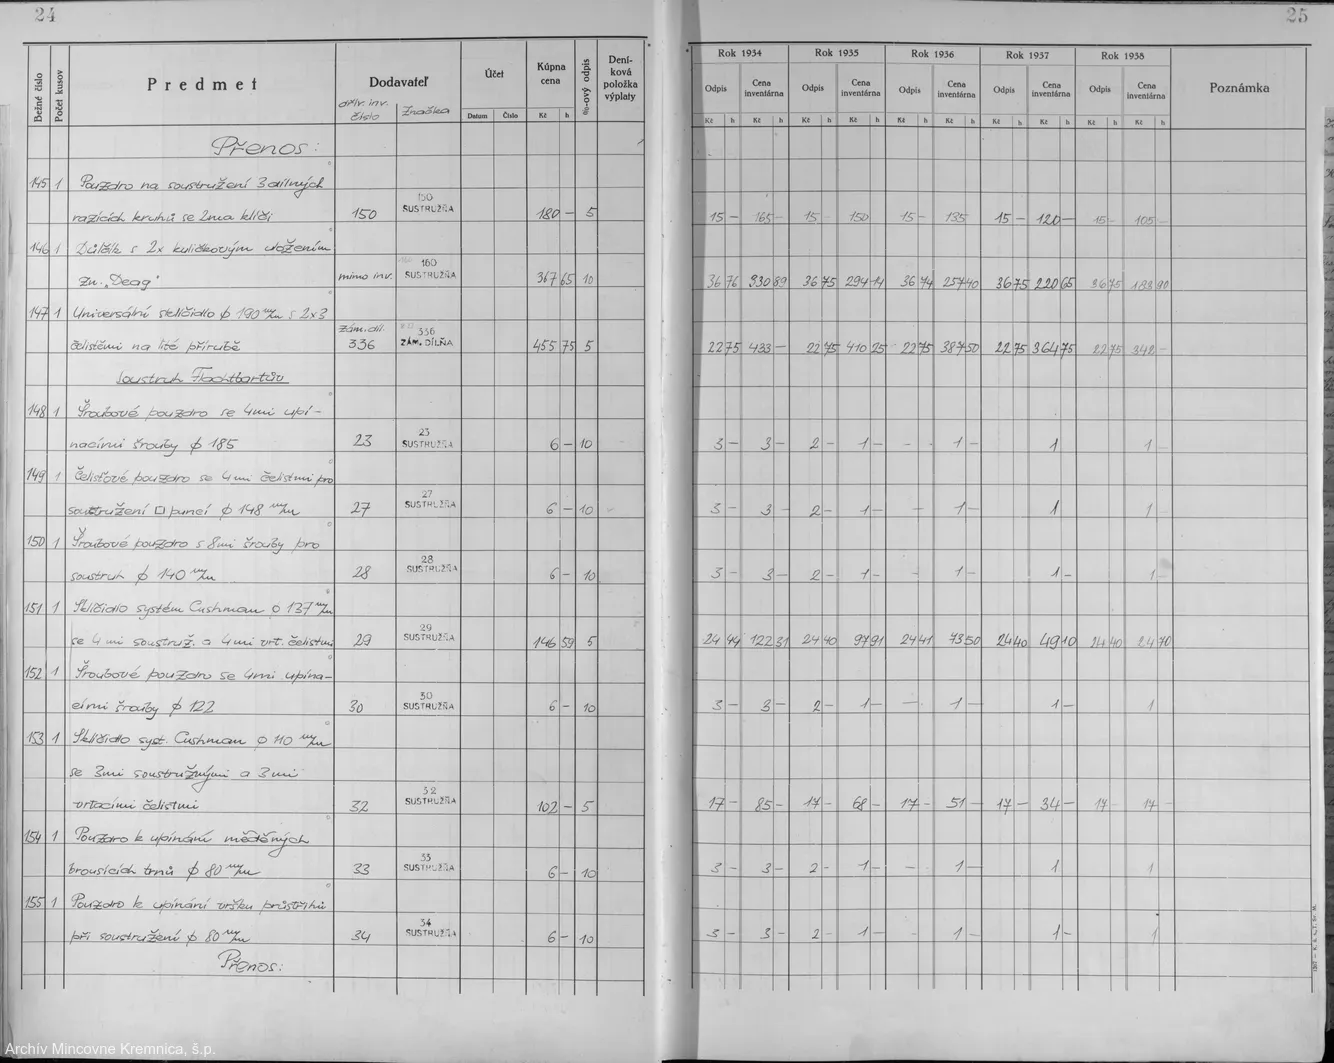 24
25
Bežné číslo Počet kusov Predmet Dodavateľ Účet Kúpna cena %-ový odpis Deníková položka výplaty
číslo Značka Datum Číslo Kč h
Rok 1934 Rok 1935 Rok 1936 Rok 1937 Rok 1938 Poznámka
Odpis Cena inventárna Odpis Cena inventárna Odpis Cena inventárna Odpis Cena inventárna Odpis Cena inventárna
Kč h Kč h Kč h Kč h Kč h Kč h Kč h Kč h Kč h Kč h
Přenos:
145 1 Pouzdro na soustružení 3 dílných 150
razících kruhů se 2ma klíči 150 SUSTRUŽŇA 180 – 5 15 – 165 – 15 – 150 15 – 135 15 – 120 – 15 – 105 –
146 1 Důlčík s 2x kuličkovým uložením 160
zn. „Deag" mimo inv. SUSTRUŽŇA 367 65 10 36 76 330 89 36 75 294 14 36 74 257 40 36 75 220 65 36 75 183 90
147 1 Universální sklíčidlo ϕ 190 m/m s 2x3 zám. díl. 336
čelistěmi na lité přírubě 336 ZÁM. DÍLŇA 455 75 5 22 75 433 – 22 75 410 25 22 75 387 50 22 75 364 75 22 75 342 –
Soustruh
148 1 Šroubové pouzdro se 4mi upí- 23
nacími šrouby ϕ 185 23 SUSTRUŽŇA 6 – 10 3 – 3 – 2 – 1 – – 1 – 1 1 –
149 1 Čelisťové pouzdro se 4mi čelistmi pro 27
soustružení □ puncí ϕ 148 m/m 27 SUSTRUŽŇA 6 – 10 3 – 3 – 2 – 1 – – 1 – 1 1 –
150 1 Šroubové pouzdro s 8mi šrouby pro 28
soustruh ϕ 140 m/m 28 SUSTRUŽŇA 6 – 10 3 – 3 – 2 – 1 – – 1 – 1 – 1 –
151 1 Sklíčidlo systém Cushman ϕ 137 m/m 29
se 4mi soustruž. a 4mi vrt. čelistmi 29 SUSTRUŽŇA 146 59 5 24 44 122 31 24 40 97 91 24 41 73 50 24 40 49 10 24 40 24 70
152 1 Šroubové pouzdro se 4mi upína- 30
cími šrouby ϕ 122 30 SUSTRUŽŇA 6 – 10 3 – 3 – 2 – 1 – – 1 – 1 – 1
153 1 Sklíčidlo syst. Cushman ϕ 110 m/m
se 3mi soustružnými a 3mi 32
vrtacími čelistmi 32 SUSTRUŽŇA 102 – 5 17 – 85 – 17 – 68 – 17 – 51 – 17 – 34 – 17 – 17 –
154 1 Pouzdro k upínání měděných 33
brousících trnů ϕ 80 m/m 33 SUSTRUŽŇA 6 – 10 3 – 3 – 2 – 1 – – 1 – 1 1
155 1 Pouzdro k upínání vršku průstřihů 34
při soustružení ϕ 80 m/m 34 SUSTRUŽŇA 6 – 10 3 – 3 – 2 – 1 – – 1 – 1 – 1
Přenos:
Archív Mincovne Kremnica, š.p.